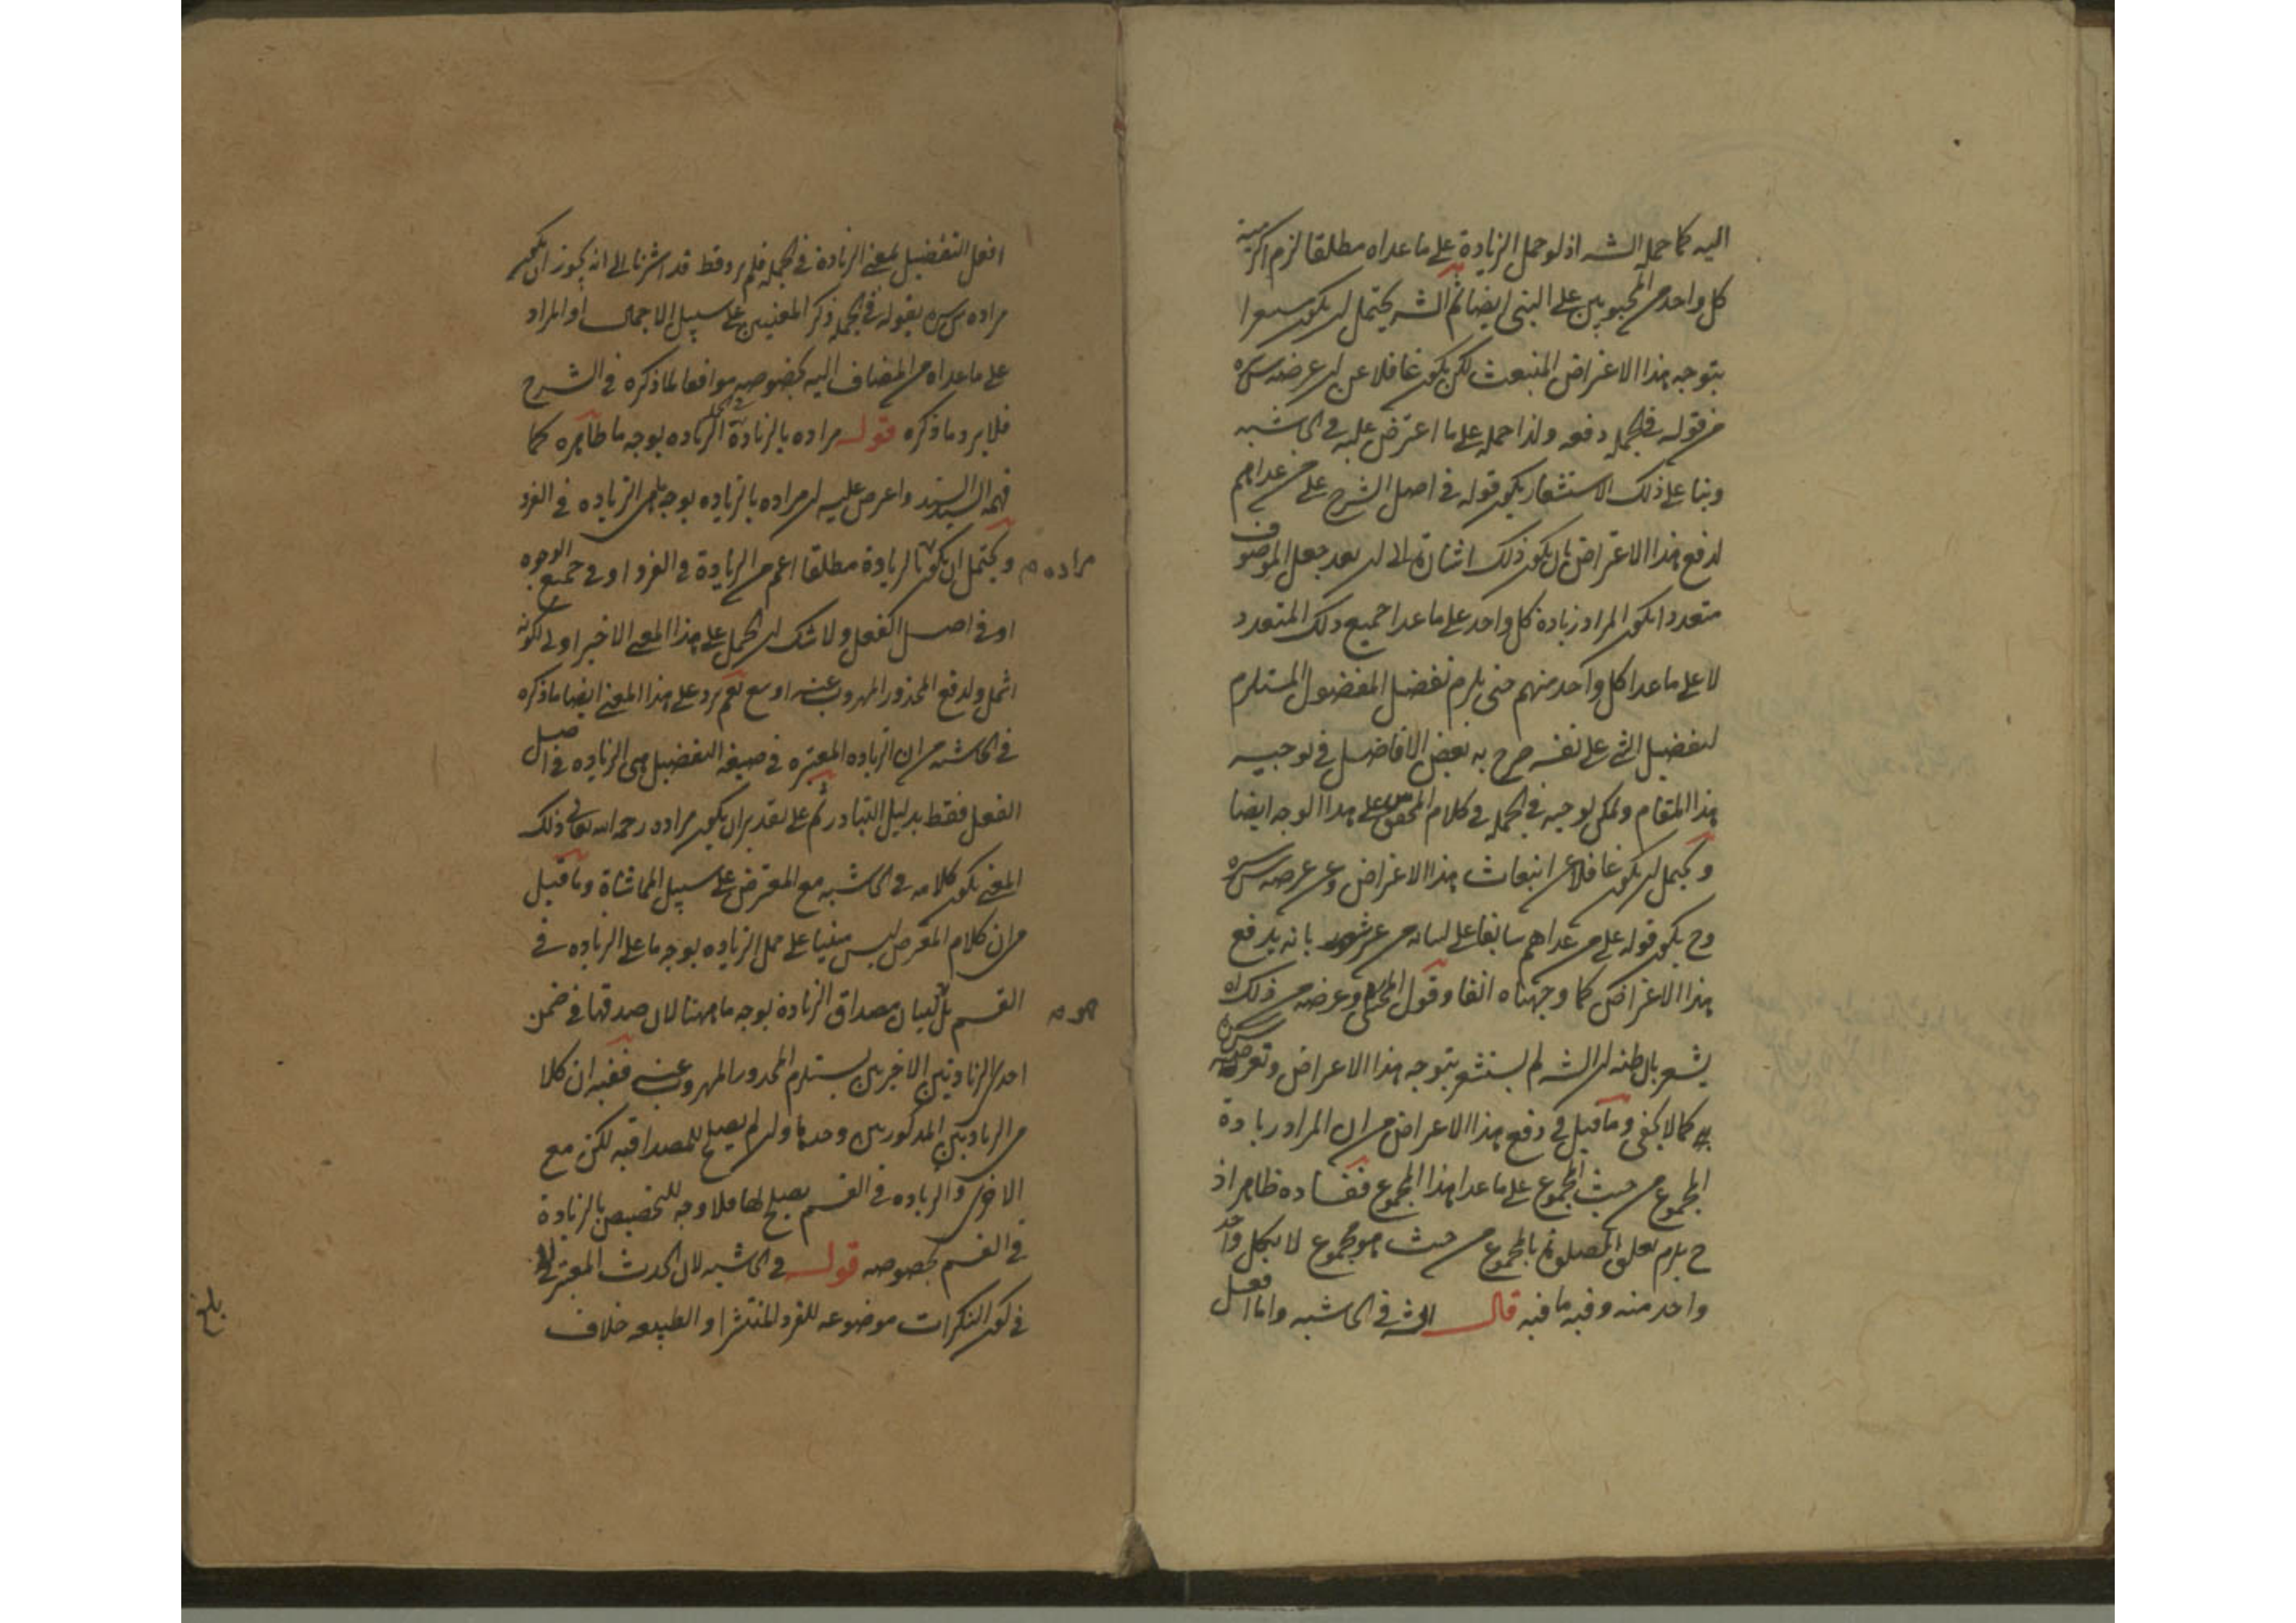 اليه كما حمل الشه اذ لو حمل الزيادة على ما عداه مطلقا لزم اكرمية
كل واحد من المحبوبين على النبى ايضا ثم الشه يحتمل ان يكون
بتوجه هذا الاعتراض المنبعث لكن يكون غافلا عن ان عرضه سره
من قوله فى الجملة دفعه ولذا حمله على ما اعترض عليه فى الحاشيه
وبنا على ذلك الاستشعار يكون قوله فى اصل الشرح على من عداهم
لدفع هذا الاعتراض بان يكون ذلك اشارة الى ان بعد جعل الموصوف
متعددا يكون المراد زيادة كل واحد على ما عدا جميع ذلك المتعدد
لا على ما عدا كل واحد منهم حتى يلزم تفضيل المفضول المستلزم
لتفضيل الشى على نفسه صرح به بعض الافاضل فى توجيه
هذا المقام ويمكن توجيه فى الجملة فى كلام المحقق على هذا الوجه ايضا
ويحتمل ان يكون غافلا عن انبعاث هذا الاعتراض وعن عرضه سره
وح يكون قوله على من عداهم سابقا على لسانه من غير شعور بانه يدفع
هذا الاعتراض كما وجهناه انفا وقول المحشى وعرضه من ذلك اه
يشعر بان ظنه ان الشه لم يستشعر بتوجه هذا الاعراض وتعرضه سره
به كما لا يخفى وما قيل فى دفع هذا الاعراض من ان المراد زيادة
المجموع من حيث المجموع على ما عدا هذا المجموع ففساده ظاهر اذ
ح يلزم تعلق الصلوة بالمجموع من حيث هو مجموع لا بكل واحد
واحد منه وفيه ما فيه قال الشه فى الحاشيه واما افعل
افعل التفضيل بمعنى الزيادة فى الجملة فلم يرد قط قد اشرنا الى انه يجوز ان يكون
مراده سره بقوله فى الجملة ذكر المعنيين على سبيل الاجمال او المراد
على ما عداه من المضاف اليه بخصوصه موافقا لما ذكره فى الشرح
فلا يرد ما ذكره قوله مراده بالزيادة فى الجملة الزيادة بوجه ما ظاهره كما
فهمه السيد السند واعرض عليه ان مراده بالزياده بوجه ما هى الزياده فى الفرد
ويحتمل ان يكون بالزيادة مطلقا اعم من الزيادة فى الفرد او فى جميع الوجوه
مراده
او فى اصل الفعل ولا شك ان الحمل على هذا المعنى الاخير اولى لكونه
اشمل ولدفع المحذور المهروب عنه اوسع نعم يرد على هذا المعنى ايضا ما ذكره
فى الحاشيه من ان الزياده المعتبره فى صيغه التفضيل هى الزياده فى اصل
الفعل فقط بدليل التبادر ثم على تقدير ان يكون مراده رحمه الله تعالى ذلك
المعنى يكون كلامه فى الحاشيه مع المعترض على سبيل المماشاة وما قيل
من ان كلام المعرض ليس مبنيا على حمل الزياده بوجه ما على الزياده فى
القسم بل لبيان مصداق الزيادة بوجه ما ههنا لان صدقها فى ضمن
احدى الزيادتين الاخريين يستلزم المحدور المهروب عنه ففيه ان كلا
من الزيادتين المذكورتين وحدها وان لم يصلح للمصداقيه لكن مع
الاخرى والزياده فى القسم يصلح لها فلا وجه للتخصيص بالزيادة
فى القسم بخصوصه قوله فى الحاشيه لان الحدث المعتبر
فى كون النكرات موضوعه للفرد المنتشر او الطبيعه خلاف
بلغ